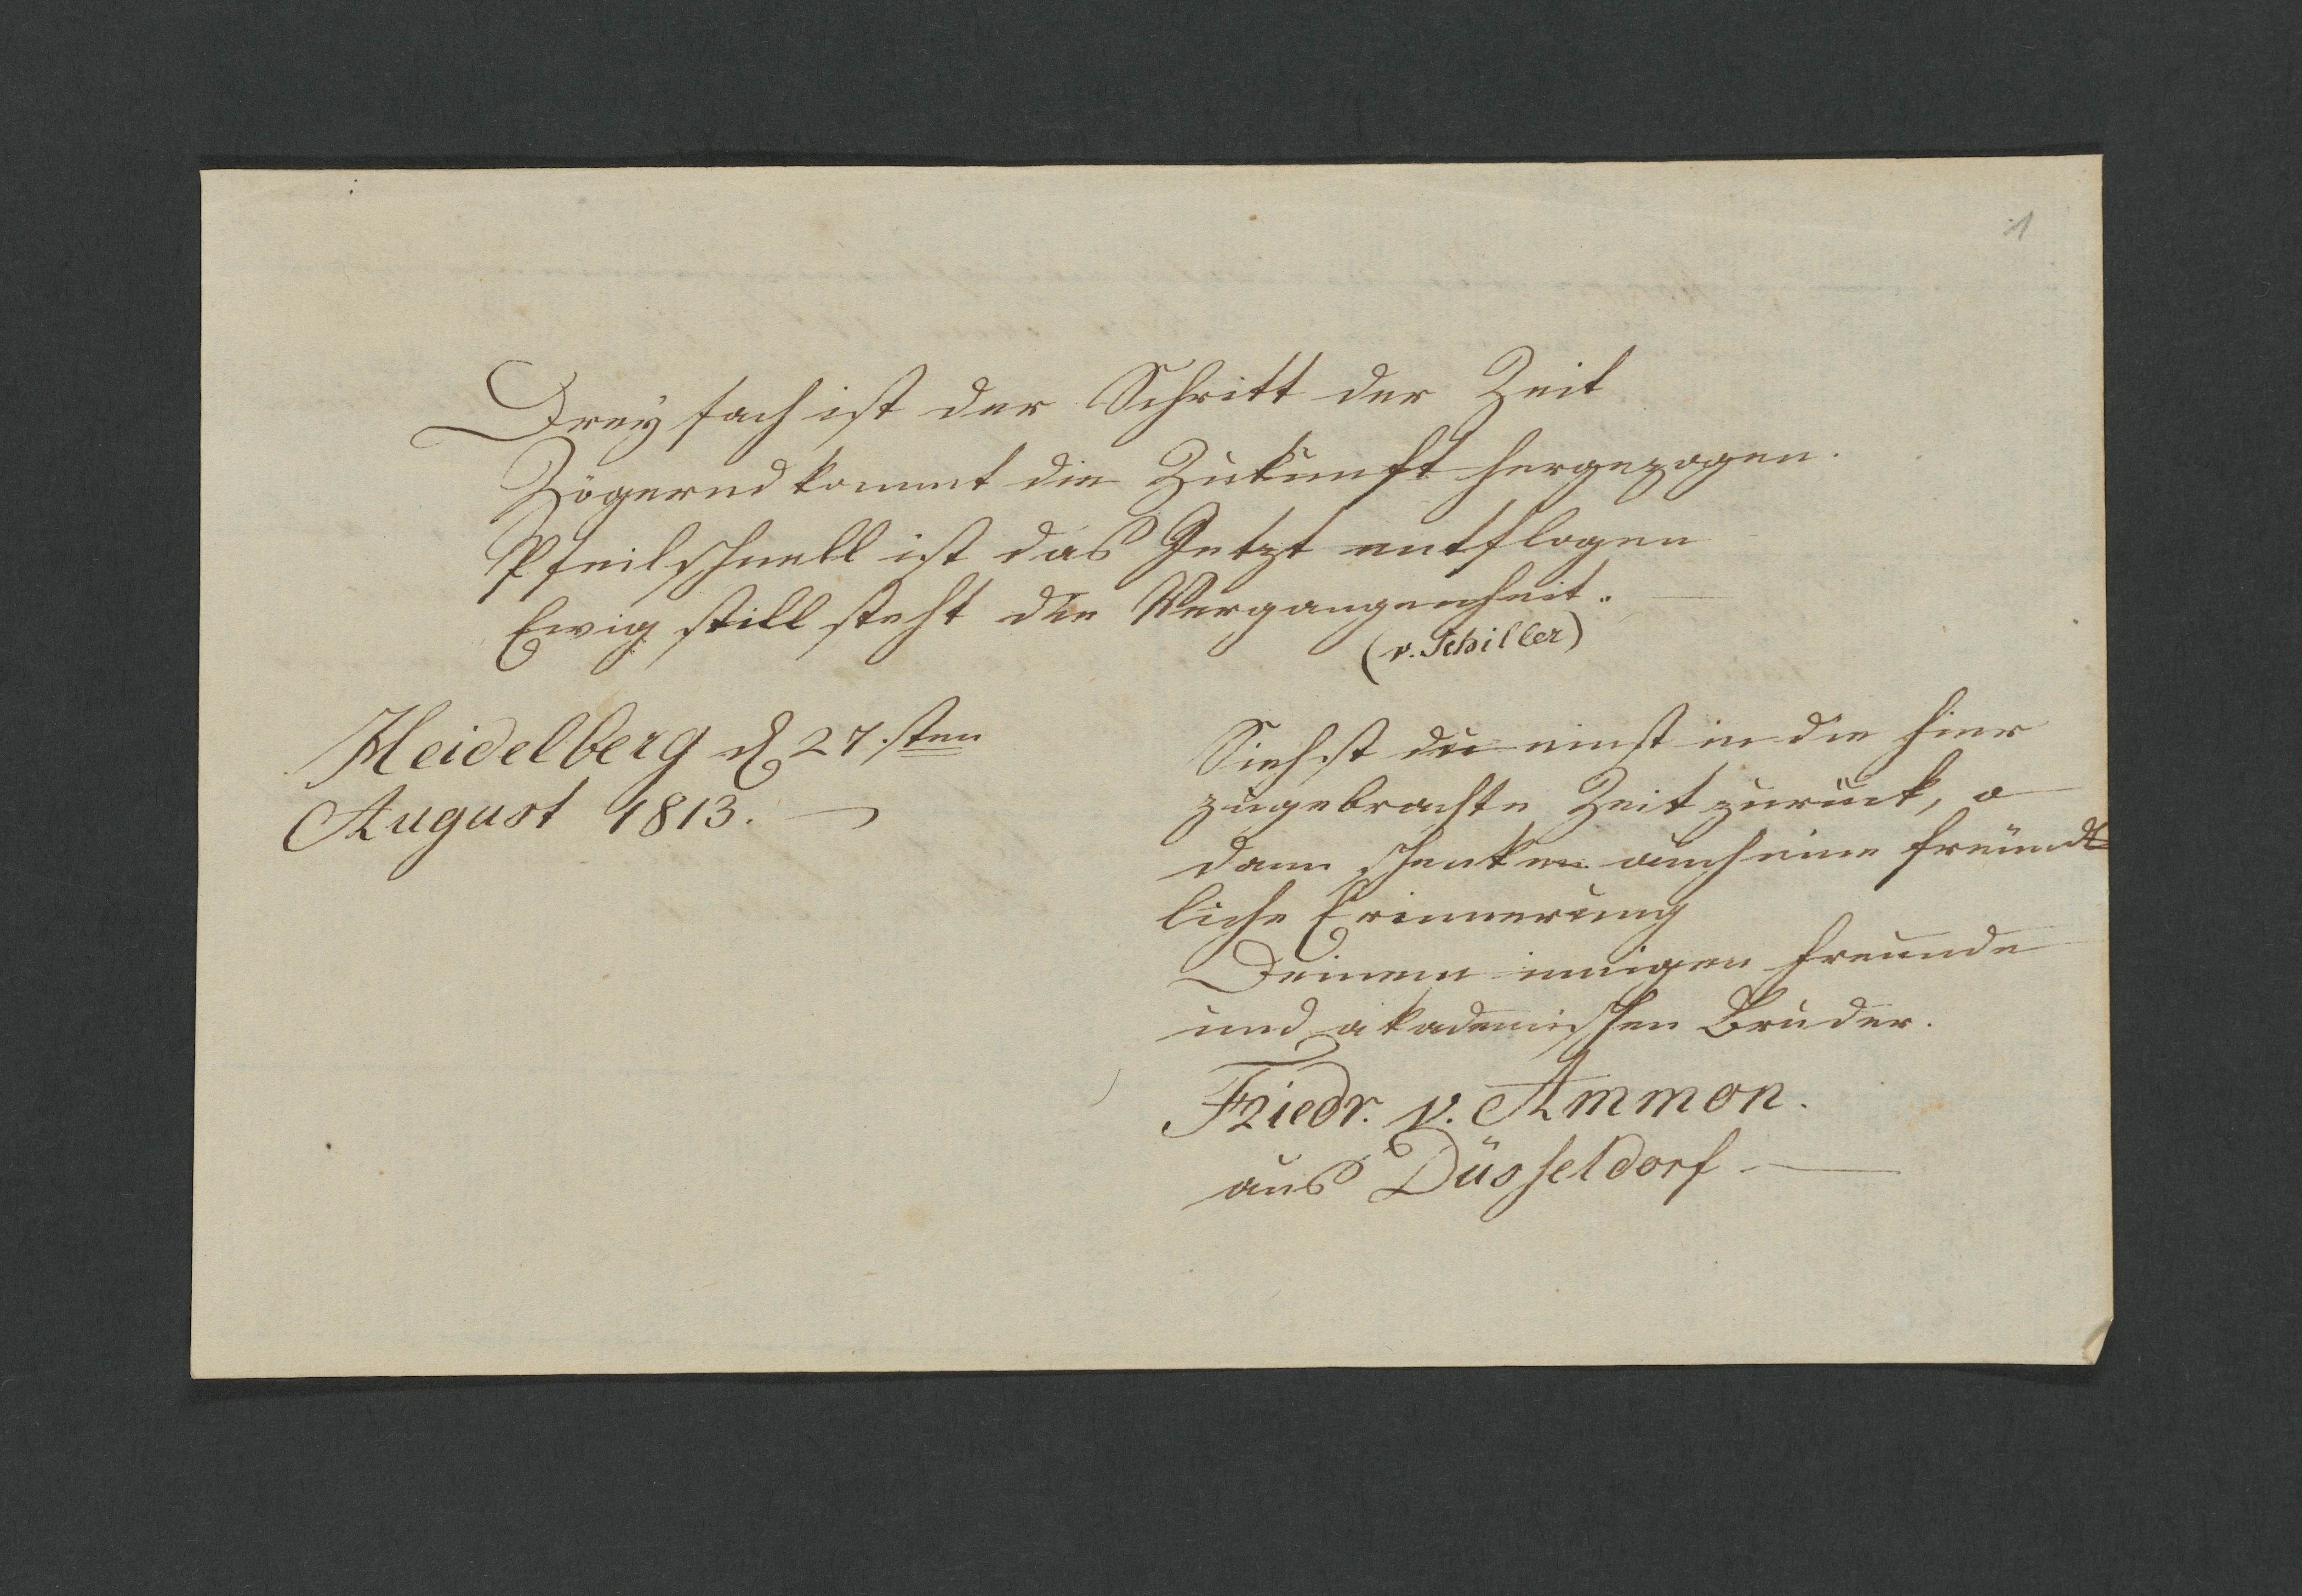 1
Dreyfach ist der Schritt der Zeit
Zögernd kommt die Zukunft hergezogen.
Pfeilschnell ist das Jetzt entflogen
Ewig still steht die Vergangenheit. —
(v. Schiller)
Heidelberg d 27.sten
August 1813. —
Siehst du einst in die hier
zugebrachte Zeit zurück, o
dann schenke auch eine freund=
liche Erinnerung
Deinem innigen Freunde
und akademischen Bruder.
Friedr. v. Ammon.
aus Düsseldorf —